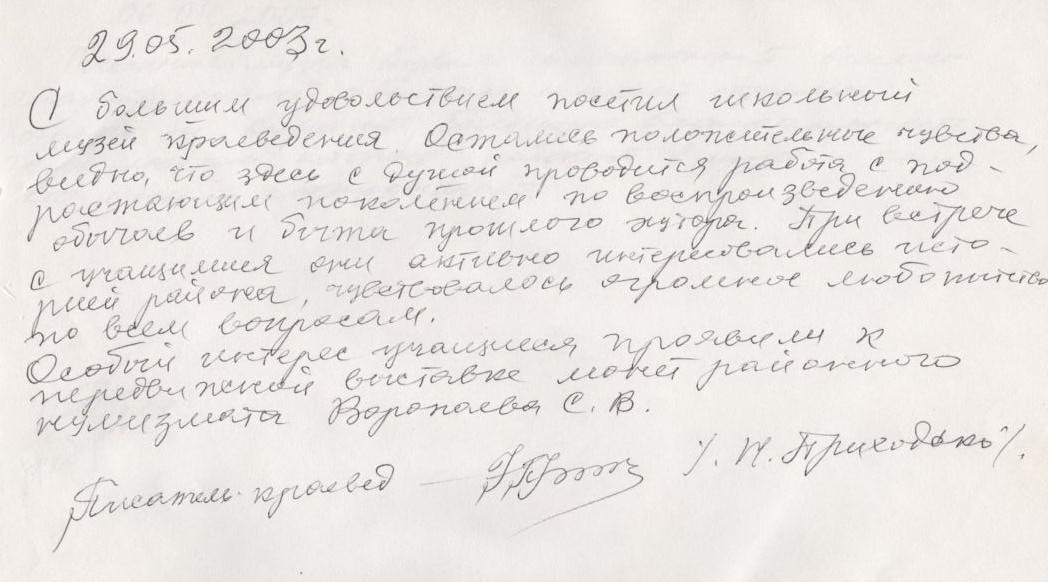 29.05.2003г.
С большим удовольствием посетил школьный
музей краеведения. Остались положительные чувства,
видно, что здесь с душой проводится работа с под-
растающим поколением по воспроизведению
обычаев и быта прошлого хутора. При встрече
с учащимися они активно интересовались исто-
рией района, чувствовалось огромное любопытство
по всем вопросам.
Особый интерес учащиеся проявили к
передвижной выставке монет районного
нумизмата Воропаева С. В.
Писатель-краевед — /. И. Приходько /.